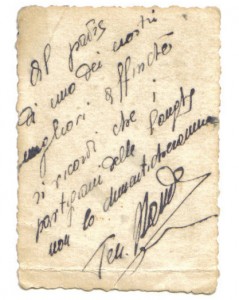 Al padre
di uno dei nostri
migliori affinchè
si ricordi che i
partigiani delle Langhe
non lo dimenticheranno
Ten.